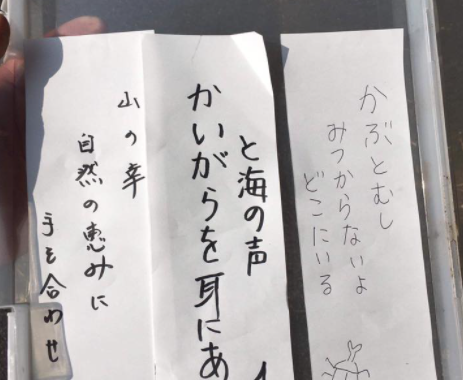 かぶとむし
みつからないよ
どこにいる
かいがらを耳にあ
と海の声
山の幸
自然の恵みに
手を合わせ